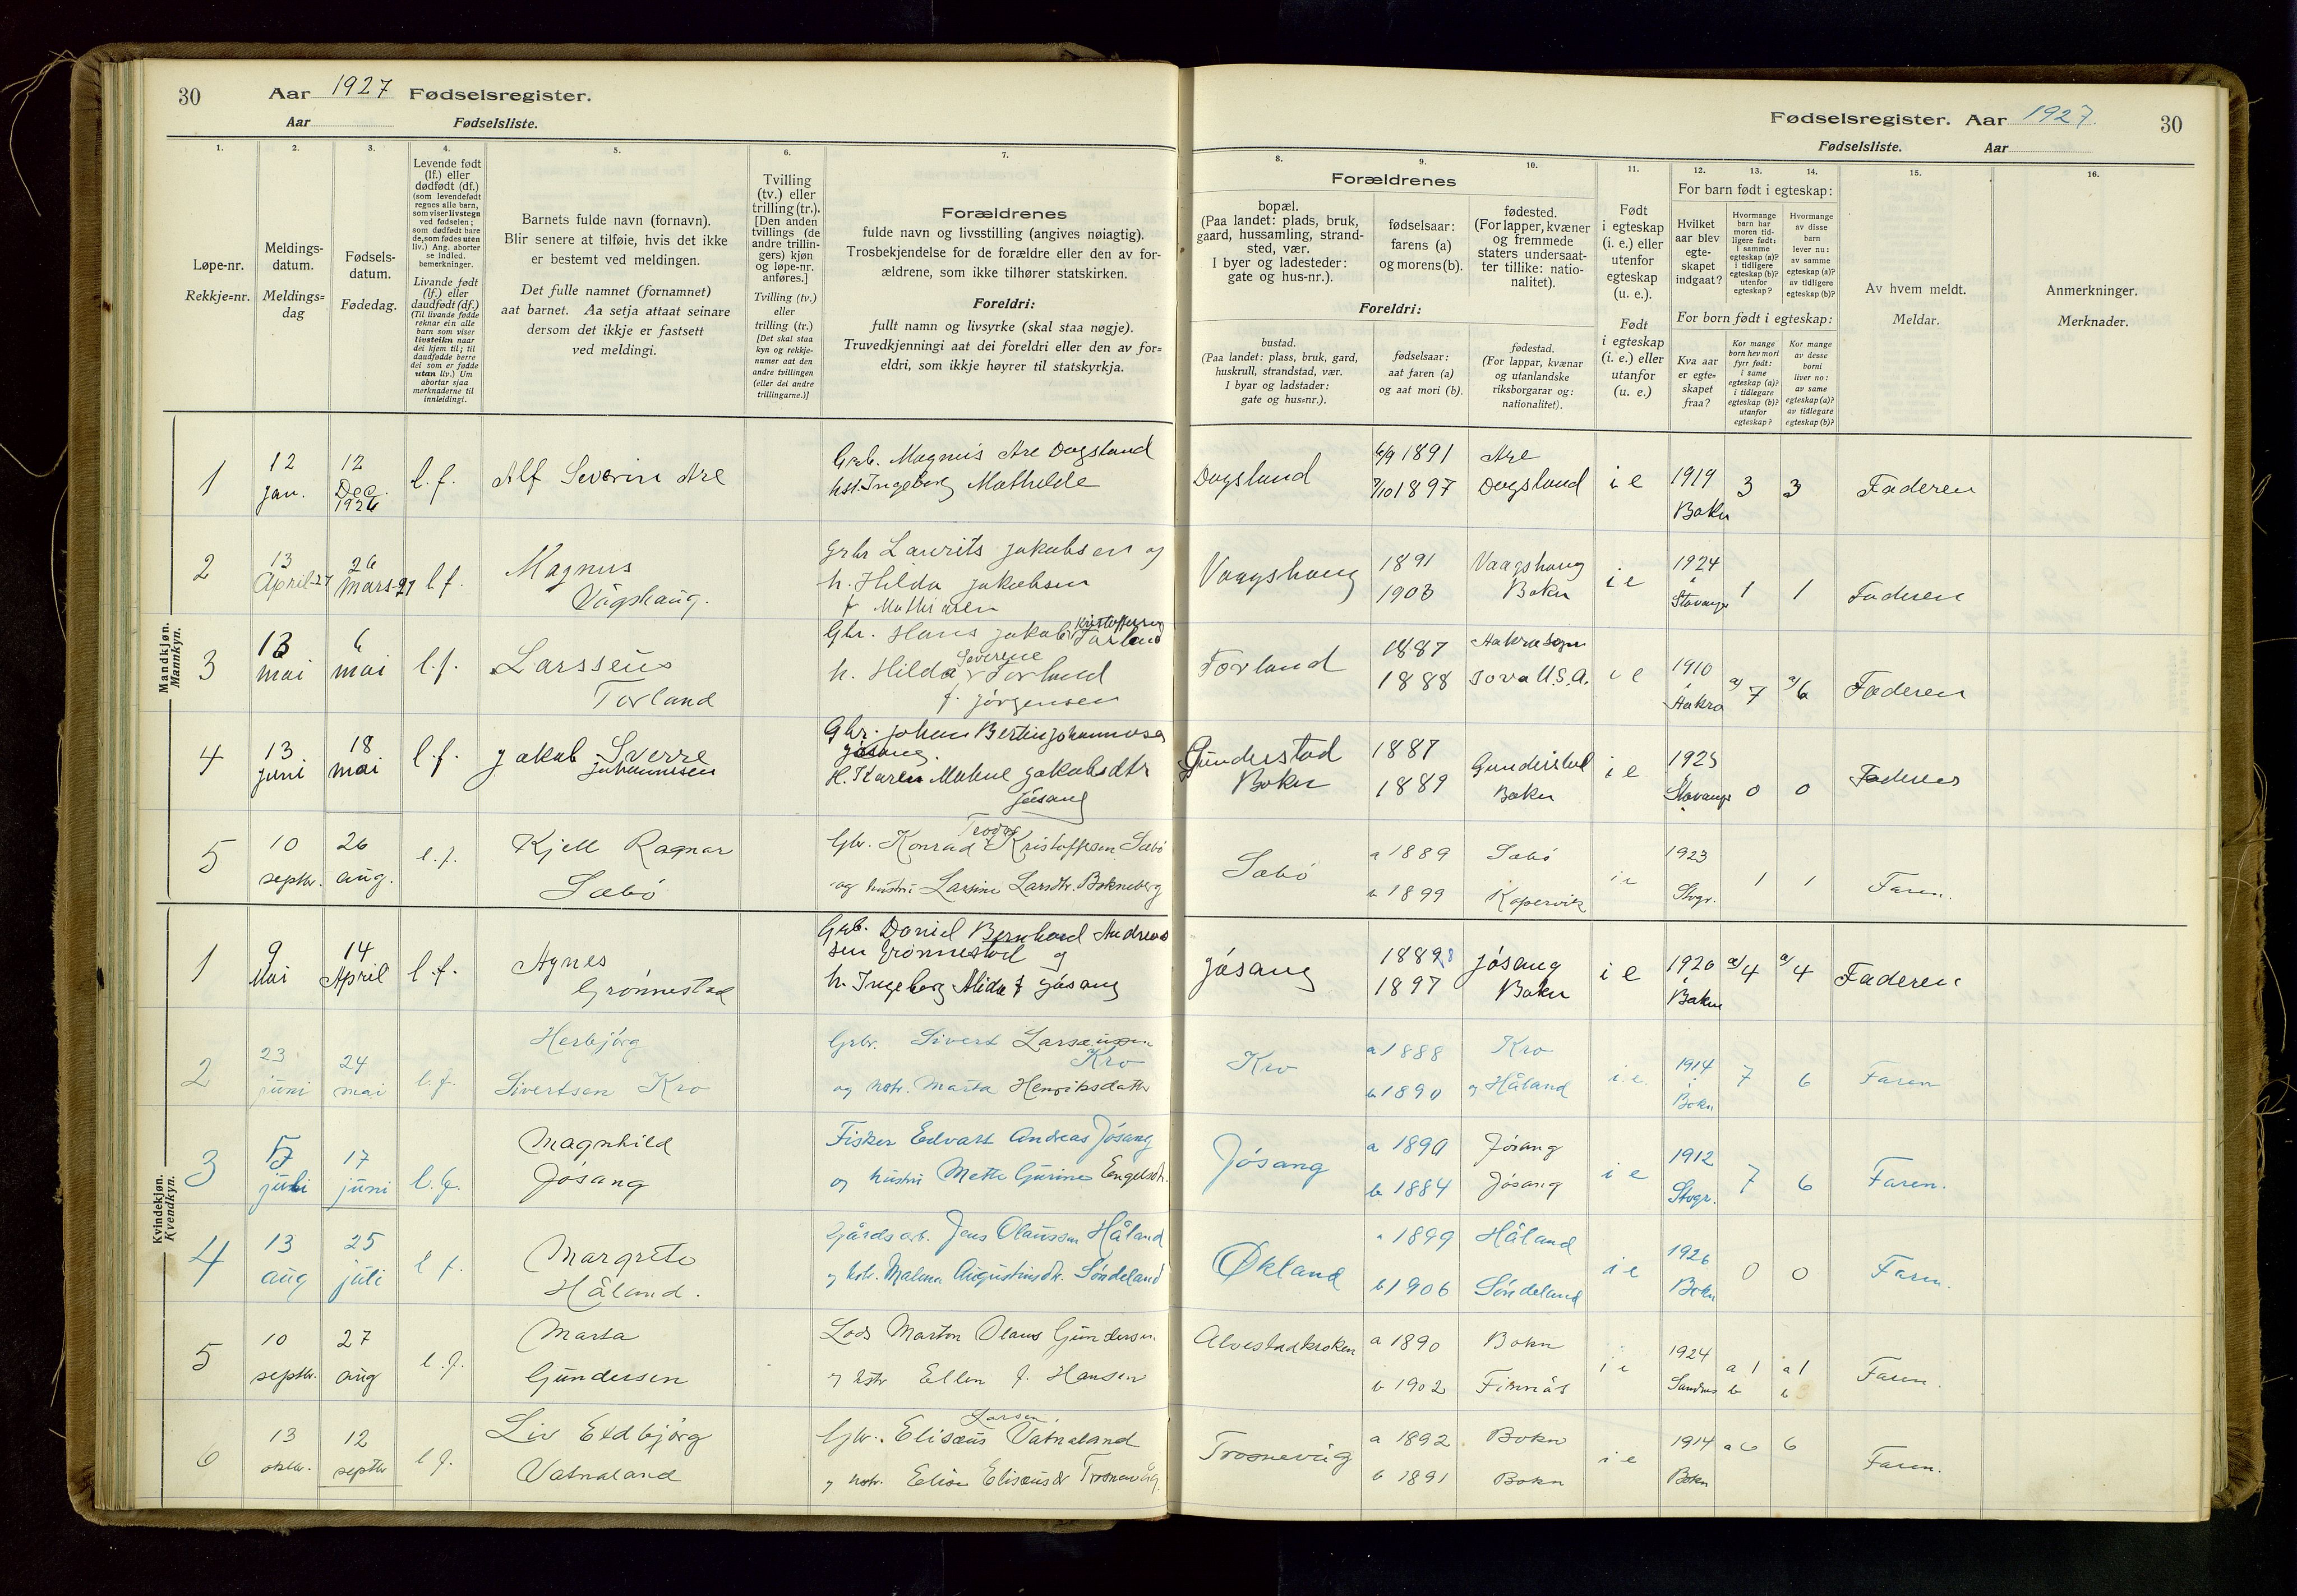 30
Aar 1927 Fødselsregister.
Aar Fødselsliste.
Fødselsregister. Aar 1927.
30
Fødselsliste. Aar
1.
2.
3.
4.
5.
6.
7.
8.
9.
10.
11.
12.
13.
14.
15.
16.
Løpe-nr.
Rekkje=nr.
Meldings-
datum.
Meldings=
dag
Fødsels-
datum.
Fødedag.
Levende født
(lf.) eller
dødfødt (df.)
(som levendefødt
regnes alle barn,
som viser livstegn
ved fødselen;
som dødfødt bare
de, som fødes uten
liv.) Ang. aborter
se indled.
bemerkninger.
Livande født
(lf.) eller
daudfødt (df.)
(Til livande fødde
reknar ein alle
barn som viser
livsteikn naar
dei kjem til; til
daudfødde berre
dei som er fødde
utan liv.) Um
abortar sjaa
merknaderne til
innleidingi.
Barnets fulde navn (fornavn).
Blir senere at tilføie, hvis det ikke
er bestemt ved meldingen.
Det fulle namnet (fornamnet)
aat barnet. Aa setja attaat seinare
dersom det ikkje er fastsett
ved meldingi.
Tvilling
(tv.) eller
trilling (tr.).
[Den anden
tvillings (de
andre trillin-
gers) kjøn
og løpe-nr.
anføres.]
Tvilling (tv.)
eller
trilling (tr.)
[Det skal staa
kyn og rekkje-
numer aat den
andre tvillingen
(eller dei andre
trillingarne.)]
Forældrenes
fulde navn og livsstilling (angives nøiagtig).
Trosbekjendelse for de forældre eller den av for-
ældrene, som ikke tilhører statskirken.
Foreldri:
fullt namn og livsyrke (skal staa nøgje).
Truvedkjenningi aat dei foreldri eller den av for=
eldri, som ikkje høyrer til statskyrkja.
Forældrenes
bopæl.
(Paa landet: plads, bruk,
gaard, hussamling, strand-
sted, vær.
I byer og ladesteder:
gate og hus-nr.).
fødselsaar:
farens (a)
og morens (b).
fødested.
(For lapper, kvæner
og fremmede
staters undersaat-
ter tillike: natio-
nalitet).
Foreldri:
bustad.
(Paa landet: plass, bruk, gard,
huskrull, strandstad, vær.
I byar og ladstader:
gate og hus=nr.).
fødselsaar:
aat faren (a)
og aat mori (b).
fødestad.
(For lappar, kvænar
og utanlandske
riksborgarar og:
nationalitet).
Født
i egteskap
(i. e.) eller
utenfor
egteskap
(u. e.).
Født
i egteskap
(i. e.) eller
utanfor
(u. e.)
For barn født i egteskap:
Hvilket
aar blev
egte-
skapet
indgaat?
Hvormange
barn har
moren tid-
ligere født:
i samme
egteskap (a)?
i tidligere
egteskap (b)?
utenfor
egteskap?
Hvormange
av disse
barn
lever nu:
av samme
egteskap (a)?
av tidligere
egteskap (b)?
For born født i egteskap:
Kva aar
er egte-
skapet
fraa?
Kor mange
born hev mori
fyrr født:
i same
egteskap (a)?
i tidlegare
egteskap (b)?
utanfor
egteskap?
Kor mange
av desse
borni
liver no:
av same
egteskap (a)?
av tidlegare
egteskap (b)?
Av hvem meldt.
Meldar.
Anmerkninger.
Merknader.
Mandkjøn.
Mannkyn.
1 12 jan. 12 Dec. 1926 l.f. Alf Severin Are Grb. Magnus Are Dagsland
hst. Ingeborg Mathilde
Dagsland 1891 Are i e 1919 3 3 Faderen
1897 Dagsland Bokn
2 13 April-27 26 Mars-27 l f. Magnus
Vågshaug.
Grbr Laurits Jakobsen og
h. Hilda Jakobsen
f Mathiasen
Vaagshaug 1891 Vaagshaug i e 1924 1 1 Faderen
1903 Bokn i Stavanger
3 13 mai 6 mai l.f. Larsseus
Torland
Gbr. Hans Jakob Kristoffersen Torland
h. Hilda Severene Torland
f. Jørgensen
Torland 1887 Aakra sogn i e 1910 a/ 7 a/6 Faderen
1888 Iova U.S.A. i Aakra
4 13 juni 18 mai l.f. Jakob Sverre
Johannesen
Gbr. Johan Bertin Johannesen
Jøsang.
H. Karen Malene Jakobsdtr
Jøsang
Gunderstad 1887 Gunderstad i e 1925 0 0 Faderen
Bokn 1889 Bokn Stavanger
5 10 septbr. 26 aug. l.f. Kjell Ragnar
Sæbø
Gbr. Konrad Teodor Kristoffersen Sæbø
og hustru Larsine Larsdtr. Bokneberg
Sæbø a 1889 Sæbø i e 1923 1 1 Faren.
b 1899 Kopervik Stvgr.
Kvindekjøn.
Kvendkyn.
1 9 Mai 14 April l.f. Agnes
Grønnestad
Grb. Daniel Bernhard Andreas
sen Grønnestad og
h. Ingeborg Alida f Jøsang
Jøsang 1889 Jøsang i e 1920 a/4 a/4 Faderen
1897 Bokn i Bokn
2 23 juni 24 mai l.f. Herbjørg
Sivertsen Kro
Grbr. Sivert Larsen
Kro
og hstr. Marta Henriksdatter
Kro a 1888 Kro i.e. 1914 7 6 Faren
b 1890 og Håland i Bokn
3 juli 17 juni l.f. Magnhild
Jøsang
Fisker Edvart Andreas Jøsang
og hustru Mette Gurine Engelsdtr.
Jøsang a 1890 Jøsang i e 1912 7 6 Faren.
b 1884 Jøsang Stvgr.
4 13 aug 25 juli l f. Margrete
Håland.
Gårdsarb. Jens Olaussen Håland
og hstr. Malena Augustinsdtr. Søndeland
Økland a 1899 Håland i e 1926 0 0 Faren.
b 1906 Søndeland Bokn
5 10 septbr. 27 aug l.f. Marta
Gundersen
Lods Marton Olaus Gundersen.
og hstr Ellen f. Hansen
Alvestadkroken a 1890 Bokn i e 1924 a 1 a 1 Faren.
b 1902 Finnås b b
6 13 oktbr. 12 septbr l f. Liv Eldbjørg
Vatnaland
Gbr. Elisæus Larsen Vatnaland
og hstr. Elise Elisæusdr Trosnavåg.
Trosnevåg a 1892 Bokn i e 1914 a 6 6 Faren.
b 1891 Bokn Bokn